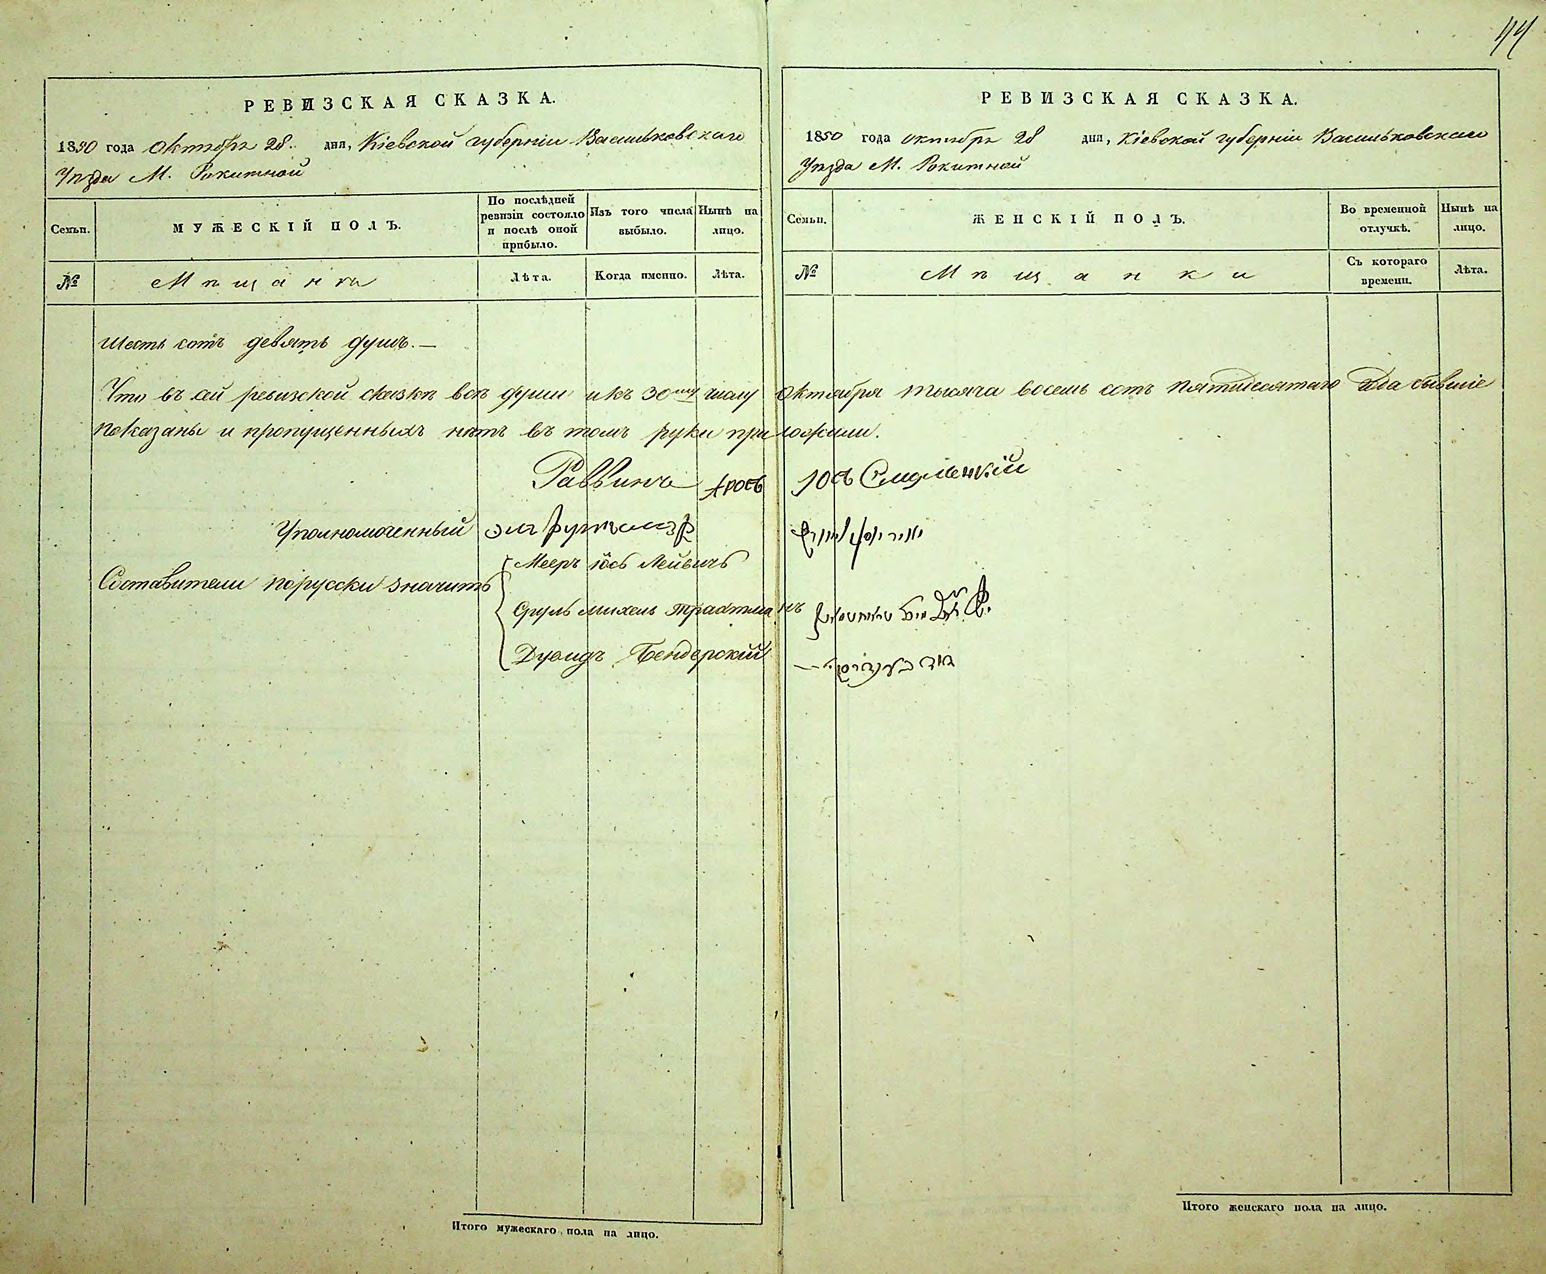 44
РЕВИЗСКАЯ СКАЗКА.
1850 года октября 28 дня, Кіевской губерніи Васильковскаго
Уѣзда М. Рокитной
Семьи.
МУЖЕСКІЙ ПОЛЪ.
По послѣдней ревизіи состояло и послѣ оной прибыло.
Изъ того числа выбыло.
Нынѣ на лицо.
№
Мѣщанѣ
Лѣта.
Когда именно.
Лѣта.
шесть сотъ девять душъ.—
Что въ сей ревизской сказкѣ всѣ души и къ 30му числу октября тысяча восемь сотъ пятидесятаго года бывшіе
показаны и пропущенныхъ нѣтъ въ томъ руки приложили.
Раввинъ
Уполномоченный
Мееръ Іось Лейвичъ
Составители порусски значитъ
Сруль Михель Трахтманъ
Дувидъ Бендерскій
Итого мужескаго пола на лицо.
РЕВИЗСКАЯ СКАЗКА.
1850 года октября 28 дня, Кіевской губерніи Васильковскаго
Уѣзда М. Рокитной
Семьи.
ЖЕНСКІЙ ПОЛЪ.
Во временной отлучкѣ.
Нынѣ на лицо.
№
Мѣщанки
Съ котораго времени.
Лѣта.
דוד בענדירסקי
Итого женскаго пола на лицо.